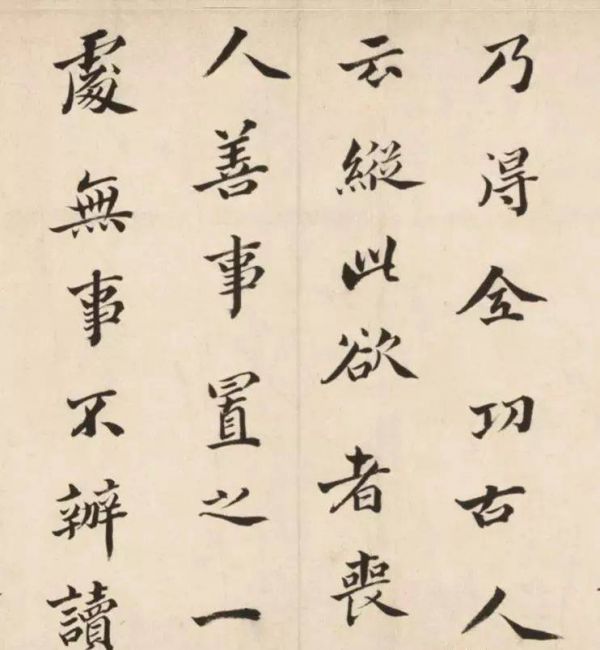 乃得全功古人
云縱此欲者喪
人善事置之一
處無事不辦讀